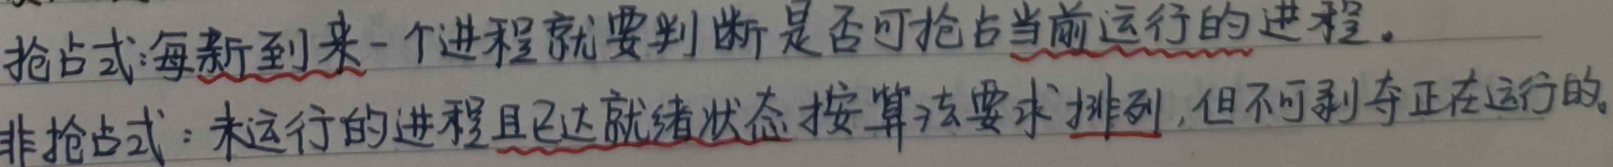 抢占式:每新到来一个进程就要判断是否可抢占当前运行的进程。
非抢占式:未运行的进程且已达就绪状态按算法要求排列,但不可剥夺正在运行的。